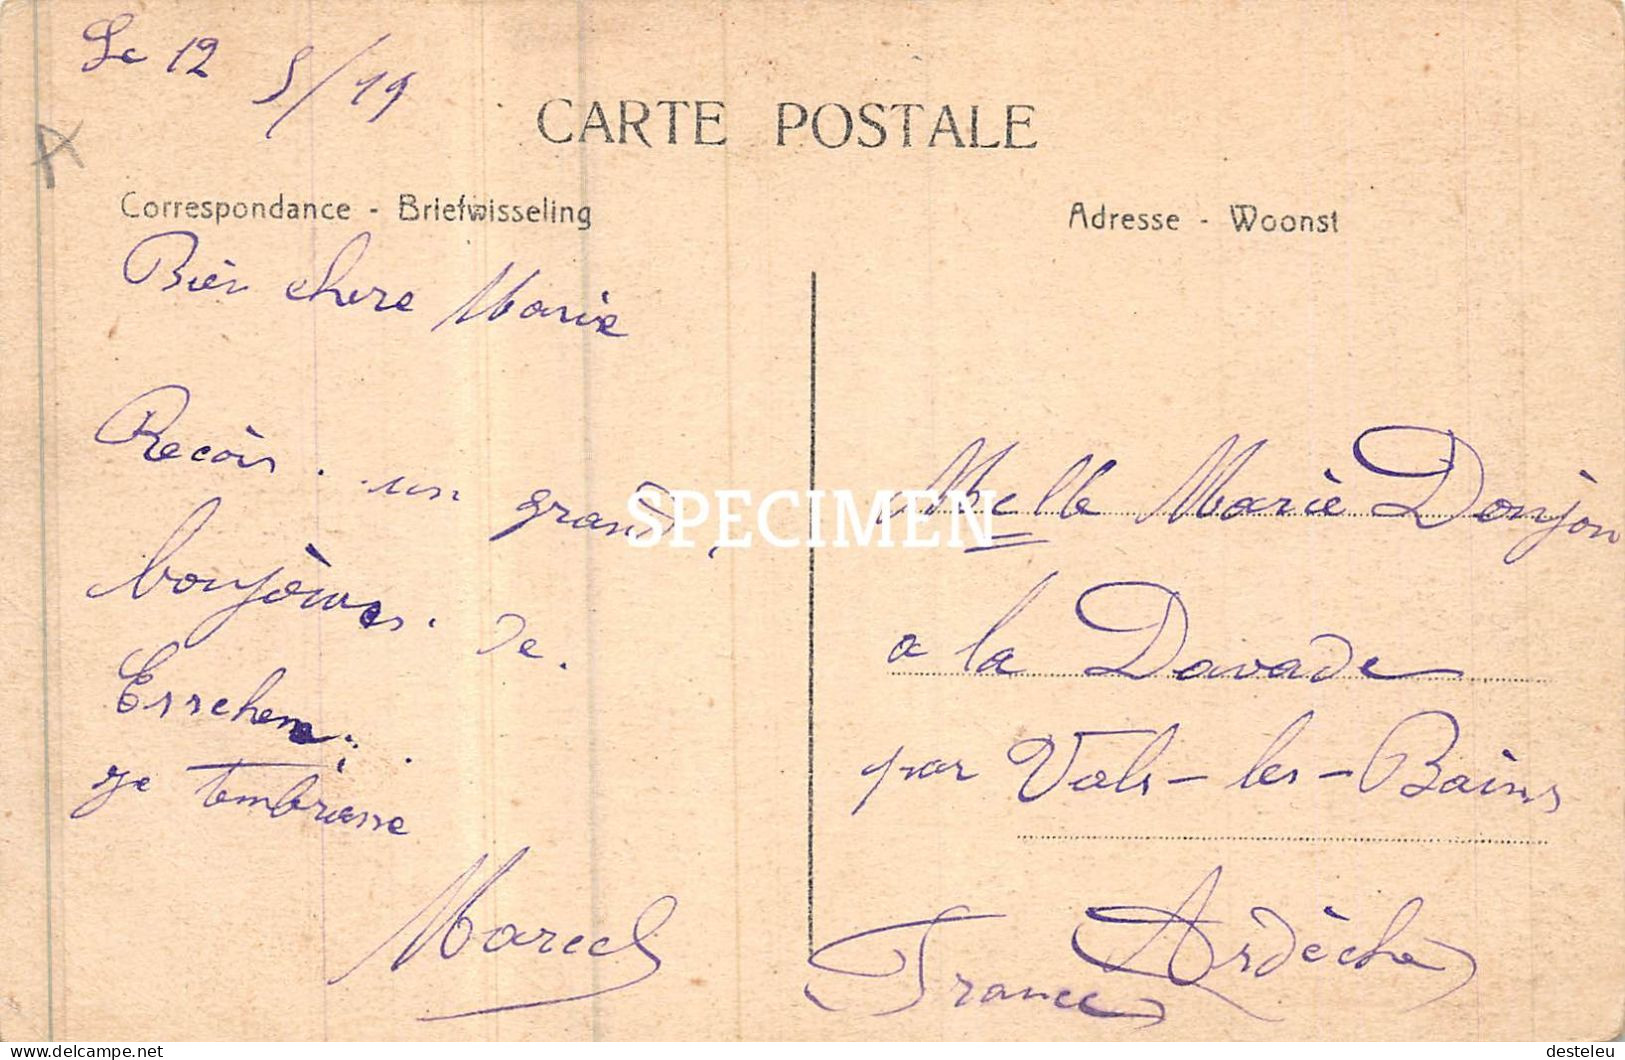 Le 12 5/19
CARTE POSTALE
Correspondance - Briefwisseling
Adresse - Woonst
Bien chere Marie
Recois un grand
bonjours. de.
je tembrasse
Marcel
SPECIMEN
Melle Marie Donjon
a la Davade
par Vals-les-Bains
Ardèche
France
delcampe.net
desteleu